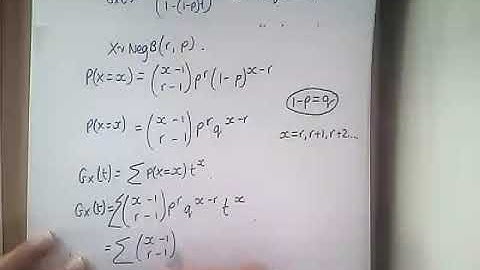 (1-(1-p)t)
X~NegB(r, p).
P(X=x) = (x-1 r-1) p^r (1-p)^x-r
1-p=q
P(X=x) = (x-1 r-1) p^r q^x-r
x=r, r+1, r+2...
Gx(t) = ∑ P(X=x) t^x
Gx(t) = ∑ (x-1 r-1) p^r q^x-r t^x
= ∑ (x-1 r-1)